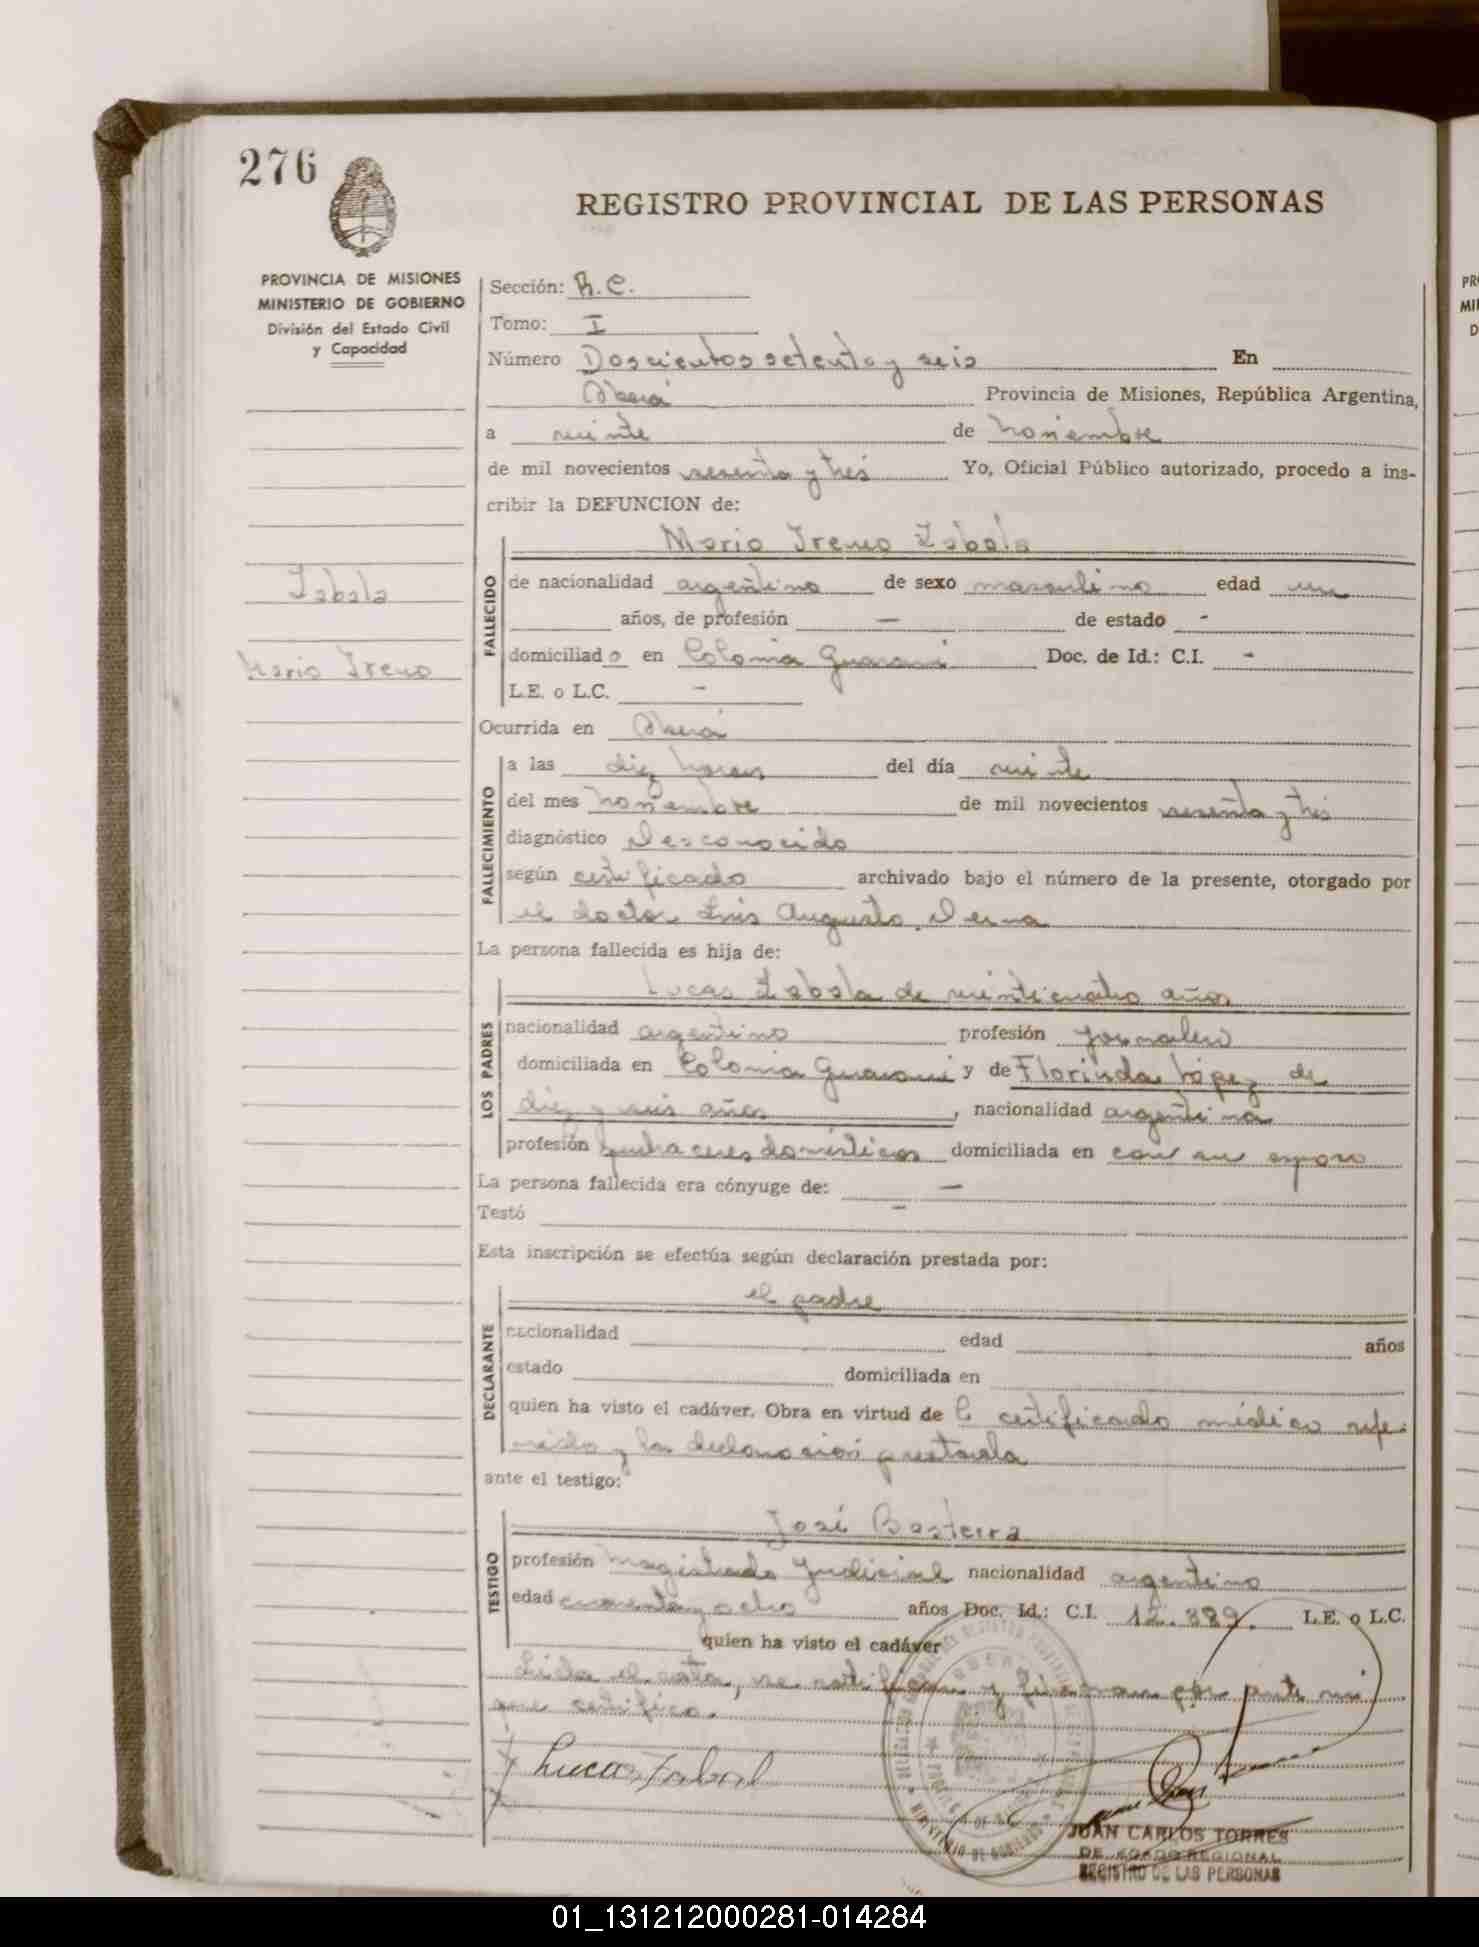 276
REGISTRO PROVINCIAL DE LAS PERSONAS
PROVINCIA DE MISIONES
MINISTERIO DE GOBIERNO
División del Estado Civil
y Capacidad
Sección: R.C.
Tomo: I
Número Doscientos setenta y seis En
Oberá Provincia de Misiones, República Argentina,
a veinte de noviembre
de mil novecientos sesenta y tres Yo, Oficial Público autorizado, procedo a ins-
cribir la DEFUNCION de:
Mario Ireneo Zabala
Zabala
Mario Ireneo
FALLECIDO
de nacionalidad argentino de sexo masculino edad un
años, de profesión — de estado -
domiciliado en Colonia Guaraní Doc. de Id.: C.I. -
L.E. o L.C. -
Ocurrida en Oberá
FALLECIMIENTO
a las diez horas del día veinte
del mes noviembre de mil novecientos sesenta y tres
diagnóstico Desconocido
según certificado archivado bajo el número de la presente, otorgado por
el doctor Luis Augusto
La persona fallecida es hija de:
LOS PADRES
Lucas Zabala de veinticuatro años
nacionalidad argentino profesión jornalero
domiciliada en Colonia Guaraní y de Florinda López de
diez y seis años, nacionalidad argentina
profesión quehaceres domésticos domiciliada en con su esposo
La persona fallecida era cónyuge de: —
Testó —
Esta inscripción se efectúa según declaración prestada por:
DECLARANTE
el padre
nacionalidad edad años
estado domiciliada en
quien ha visto el cadáver. Obra en virtud de l certificado médico refe-
rido y la declaración prestada
ante el testigo:
TESTIGO
José Basterra
profesión Magistrado Judicial nacionalidad argentino
edad cuarenta y ocho años Doc. Id.: C.I. 12.389. L.E. o L.C.
quien ha visto el cadáver
Leida el acta, se ratifican y firman por ante mi
que certifico.
Lucas Zabal
JUAN CARLOS TORRES
REGIONAL
REGISTRO DE LAS PERSONAS
01_131212000281-014284